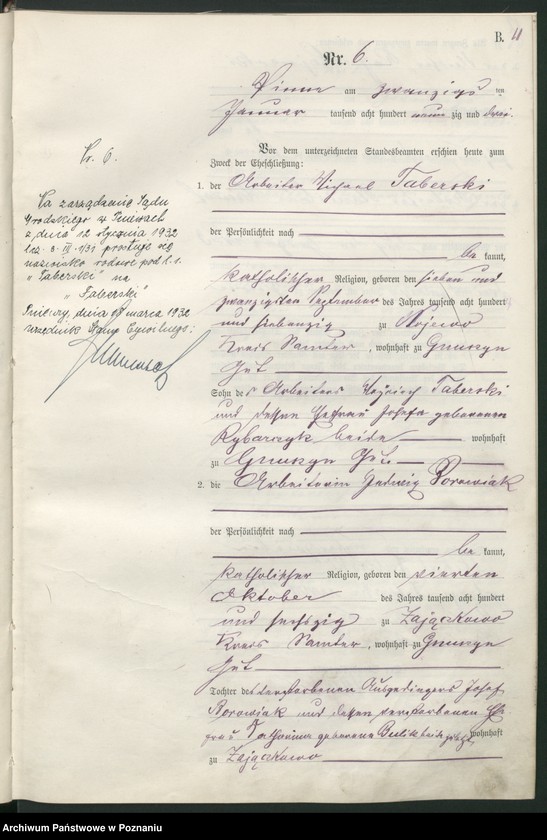 B. 11
Nr. 6.
Pinne am zwanzigsten
Januar tausend acht hundert neunzig und drei.
Vor dem unterzeichneten Standesbeamten erschien heute zum
Zweck der Eheschließung:
1. der Arbeiter Michael Taberski
der Persönlichkeit nach
bekannt,
katholischer Religion, geboren den sieben und
zwanzigsten September des Jahres tausend acht hundert
und siebenzig zu
Kreis Samter, wohnhaft zu Gnuszyn
Gut
Sohn des Arbeiters Wojciech Taberski
und dessen Ehefrau Josefa geborenen
Rybarczyk beide wohnhaft
zu Gnuszyn Gut
2. die Arbeiterin Hedwig Borowiak
der Persönlichkeit nach
bekannt,
katholischer Religion, geboren den vierten
Oktober des Jahres tausend acht hundert
und sechszig zu Zajączkowo
Kreis Samter, wohnhaft zu Gnuszyn
Gut
Tochter des verstorbenen Ausgedingers Josef
Borowiak und dessen verstorbenen Ehe
frau Katharina geborene wohnhaft
zu Zajączkowo
Nr. 6.
Na zarządzenie Sądu
Grodzkiego w Pniewach
z dnia 12 stycznia 1932
prostuje się
nazwisko rodowe pod l. 1.
"Taberski" na
"Faberski"
Pniewy, dnia marca 1932
urzędnik Stanu Cywilnego:
Archiwum Państwowe w Poznaniu